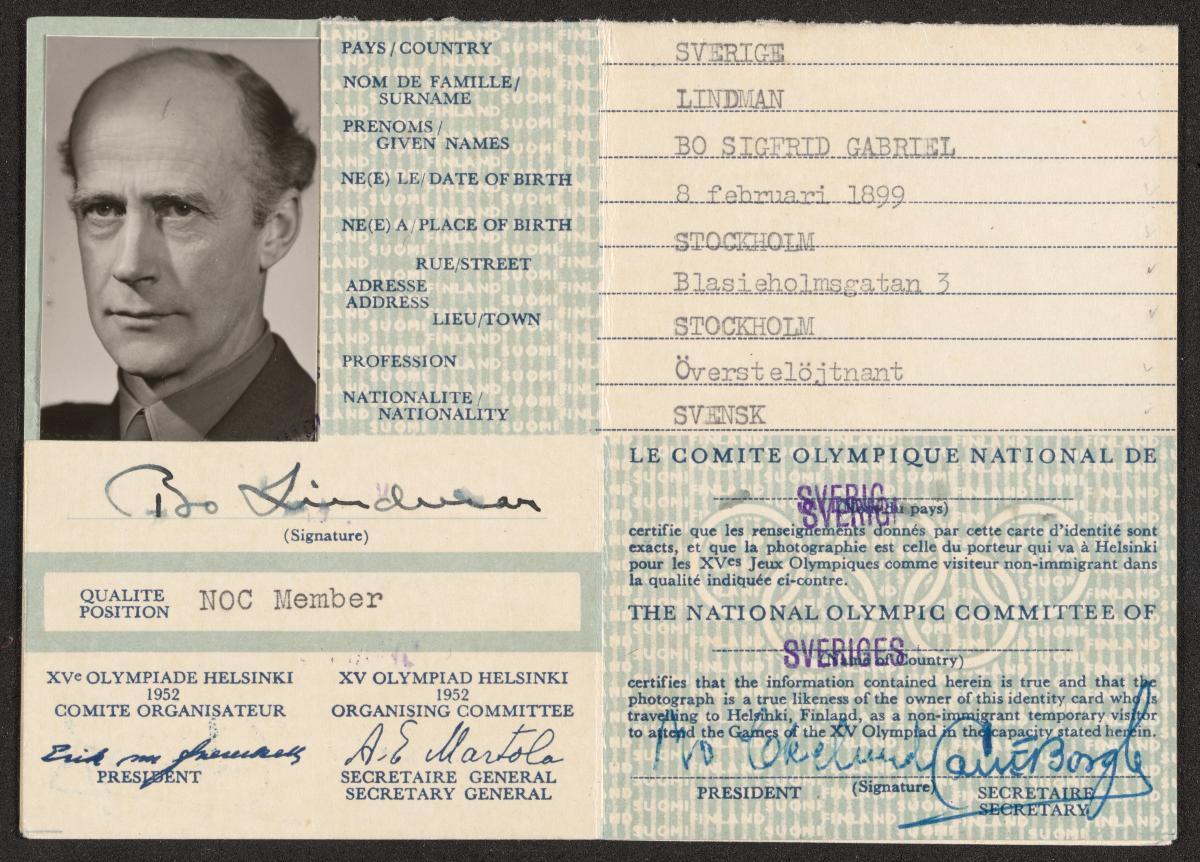 PAYS/COUNTRY
SVERIGE
NOM DE FAMILLE/
SURNAME
LINDMAN
PRENOMS/
GIVEN NAMES
BO SIGFRID GABRIEL
NE(E) LE/DATE OF BIRTH
8 februari 1899
NE(E) A/PLACE OF BIRTH
STOCKHOLM
RUE/STREET
Blasieholmsgatan 3
ADRESSE
ADDRESS
LIEU/TOWN
STOCKHOLM
PROFESSION
Överstelöjtnant
NATIONALITE/
NATIONALITY
SVENSK
Bo Lindman
(Signature)
QUALITE
POSITION
NOC Member
XVe OLYMPIADE HELSINKI
1952
COMITE ORGANISATEUR
Erik von Frenckell
PRESIDENT
XV OLYMPIAD HELSINKI
1952
ORGANISING COMMITTEE
A E Martola
SECRETAIRE GENERAL
SECRETARY GENERAL
LE COMITE OLYMPIQUE NATIONAL DE
SVERIG
SVERIG
(Nom du pays)
certifie que les renseignements donnés par cette carte d'identité sont
exacts, et que la photographie est celle du porteur qui va à Helsinki
pour les XVes Jeux Olympiques comme visiteur non-immigrant dans
la qualité indiquée ci-contre.
THE NATIONAL OLYMPIC COMMITTEE OF
SVERIGES
(Name of Country)
certifies that the information contained herein is true and that the
photograph is a true likeness of the owner of this identity card who is
travelling to Helsinki, Finland, as a non-immigrant temporary visitor
to attend the Games of the XV Olympiad in the capacity stated herein.
Bo Ekelund
PRESIDENT
(Signature)
Borgh
SECRETAIRE
SECRETARY